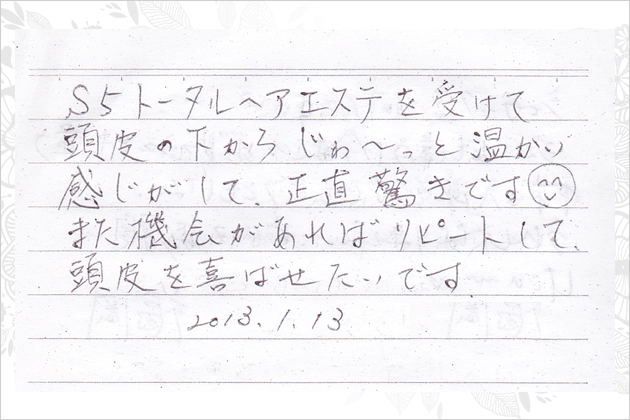 S5トータルヘアエステを受けて
頭皮の下から じわ〜っと温かい
感じがして、正直驚きです
また機会があればリピートして、
頭皮を喜ばせたいです.
2013.1.13